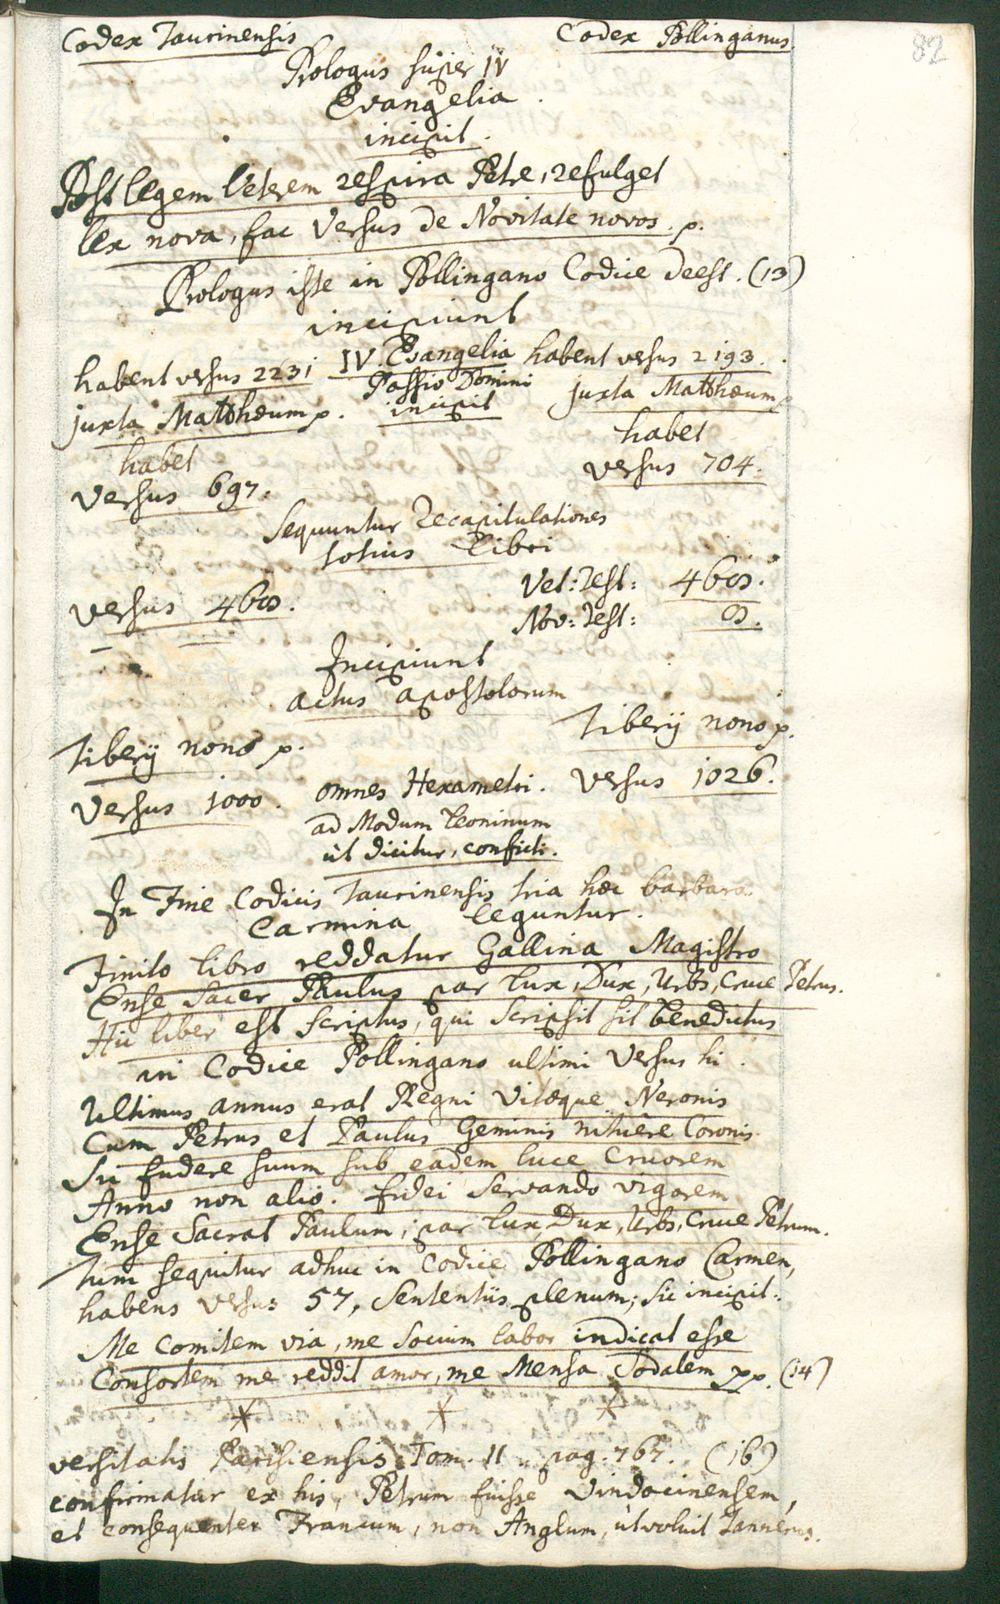 Codex Taurinensis Codex Pollinganus 82
Prologus super IV
Evangelia
incipit.
Post legem Veterem respira Petre, refulget
lex nova, fac Versus de Novitate novos. p.
Prologus iste in Pollingano Codice deest. (13)
incipiunt
habent versus 2231 IV. Evangelia habent versus 2193.
juxta Matthæum p. Passio Domini juxta Matthæum p
incipit
habet habet
versus 697. versus 704.
Sequuntur Recapitulationes
totius libri
versus 460. Vet: Test: 460.
Nov: Test: 0.
Incipiunt
actus apostolorum
Tiberij nono p. Tiberij nono p.
versus 1000. omnes Hexametri. versus 1026.
ad Modum leoninum
ut dicitur, conficti.
In Fine Codicis Taurinensis tria hæc barbara
Carmina leguntur.
Finito libro reddatur Gallina Magistro
Ense Sacer Paulus par lux, Dux, Urbs, Cruce Petrus.
Hic liber est scriptus, qui scripsit sit benedictus
in Codice Pollingano ultimi Versus hi.
Ultimus annus erat Regni Vitæque Neronis
Cum Petrus et Paulus Geminis nituêre Coronis.
Su fudere suum sub eadem luce Cruorem
Anno non alio. fidei servando vigorem
Ense Sacrat Paulum; par lux, Dux, Urbs, Cruce Petrum.
Tum sequitur adhuc in Codice Pollingano Carmen,
habens versus 57, Sententiis plenum; sic incipit:
Me Comitem via, me Socium labor indicat esse
Consortem me reddit amor, me Mensa Sodalem pp. (14)
* * *
versitatis Parisiensis Tom. II pag. 767. (16)
confirmatur ex his, Petrum fuisse Vindocinensem,
et consequenter Francum, non Anglum, ut voluit Tannerus.